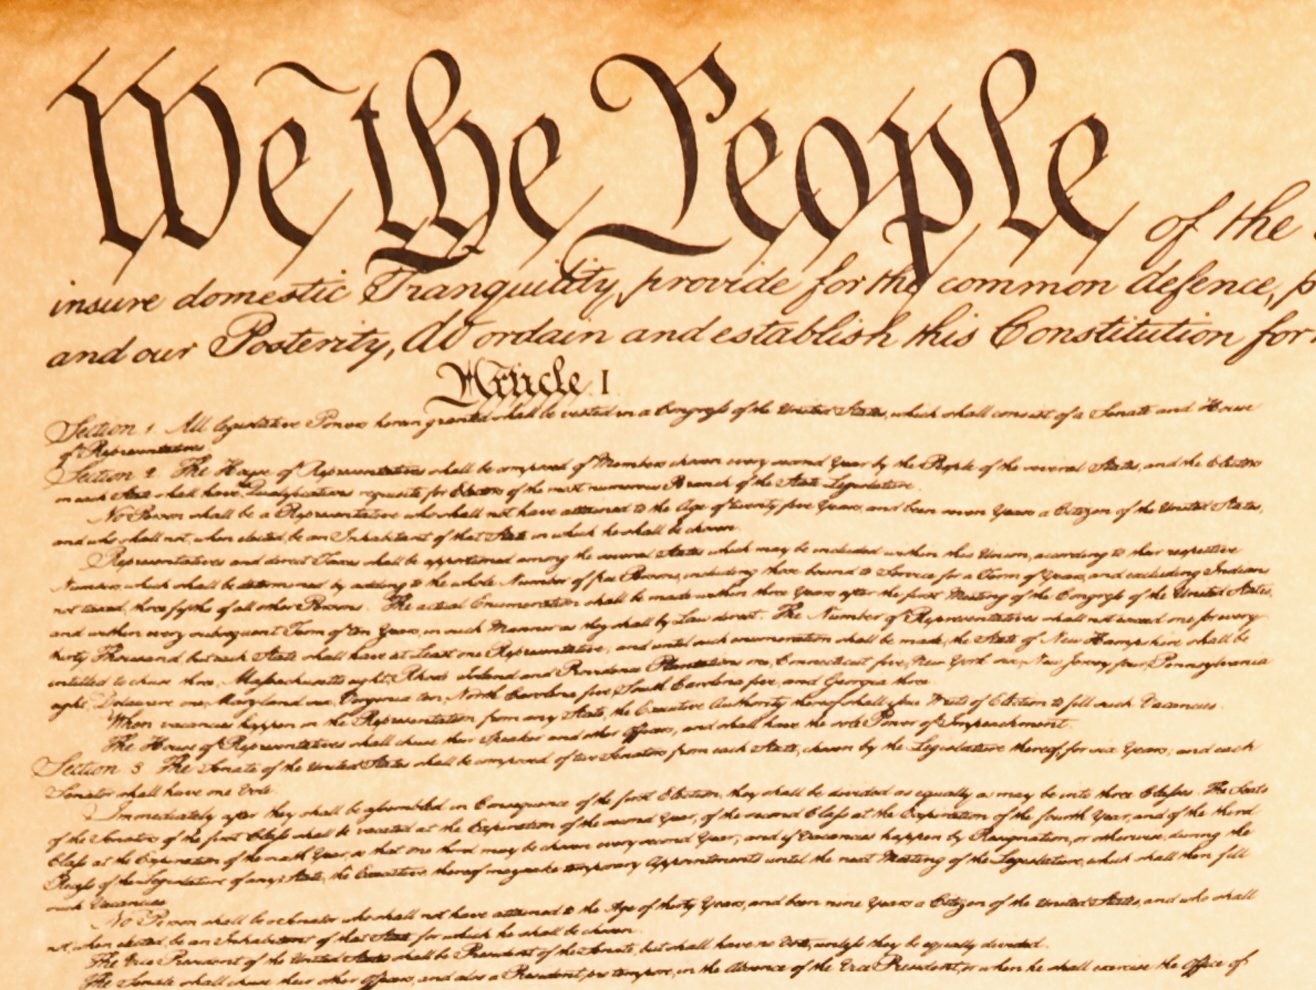 We the People of the
insure domestic Tranquility, provide for the common defence, p
and our Posterity, do ordain and establish this Constitution for
Article I
Section 1 All legislative Powers herein granted shall be vested in a Congress of the United States, which shall consist of a Senate and House
of Representatives
Section 2 The House of Representatives shall be composed of Members chosen every second Year by the People of the several States, and the Electors
in each State shall have Qualifications requisite for Electors of the most numerous Branch of the State Legislature.
No Person shall be a Representative who shall not have attained to the Age of twenty five Years, and been seven Years a Citizen of the United States,
and who shall not, when elected, be an Inhabitant of that State in which he shall be chosen
Representatives and direct Taxes shall be apportioned among the several States which may be included within this Union, according to their respective
Numbers, which shall be determined by adding to the whole Number of free Persons, including those bound to Service for a Term of Years, and excluding Indians
not taxed, three fifths of all other Persons. The actual Enumeration shall be made within three Years after the first Meeting of the Congress of the United States,
and within every subsequent Term of ten Years, in such Manner as they shall by Law direct. The Number of Representatives shall not exceed one for every
thirty Thousand, but each State shall have at Least one Representative; and until such enumeration shall be made, the State of New Hampshire shall be
entitled to chuse three, Massachusetts eight, Rhode Island and Providence Plantations one, Connecticut five, New York six, New Jersey four, Pennsylvania
eight, Delaware one, Maryland six, Virginia ten, North Carolina five, South Carolina five, and Georgia three.
When vacancies happen in the Representation from any State, the Executive Authority thereof shall issue Writs of Election to fill such Vacancies.
The House of Representatives shall chuse their Speaker and other Officers; and shall have the sole Power of Impeachment.
Section 3 The Senate of the United States shall be composed of two Senators from each State, chosen by the Legislature thereof, for six Years; and each
Senator shall have one Vote.
Immediately after they shall be assembled in Consequence of the first Election, they shall be divided as equally as may be into three Classes. The Seats
of the Senators of the first Class shall be vacated at the Expiration of the second Year, of the second Class at the Expiration of the fourth Year, and of the third
Class at the Expiration of the sixth Year, so that one third may be chosen every second Year; and if Vacancies happen by Resignation, or otherwise, during the
Recess of the Legislature of any State, the Executive thereof may make temporary Appointments until the next Meeting of the Legislature, which shall then fill
such Vacancies.
No Person shall be a Senator who shall not have attained to the Age of thirty Years, and been nine Years a Citizen of the United States, and who shall
not, when elected, be an Inhabitant of that State for which he shall be chosen.
The Vice President of the United States shall be President of the Senate, but shall have no Vote, unless they be equally divided.
The Senate shall chuse their other Officers, and also a President pro tempore, in the Absence of the Vice President, or when he shall exercise the Office of